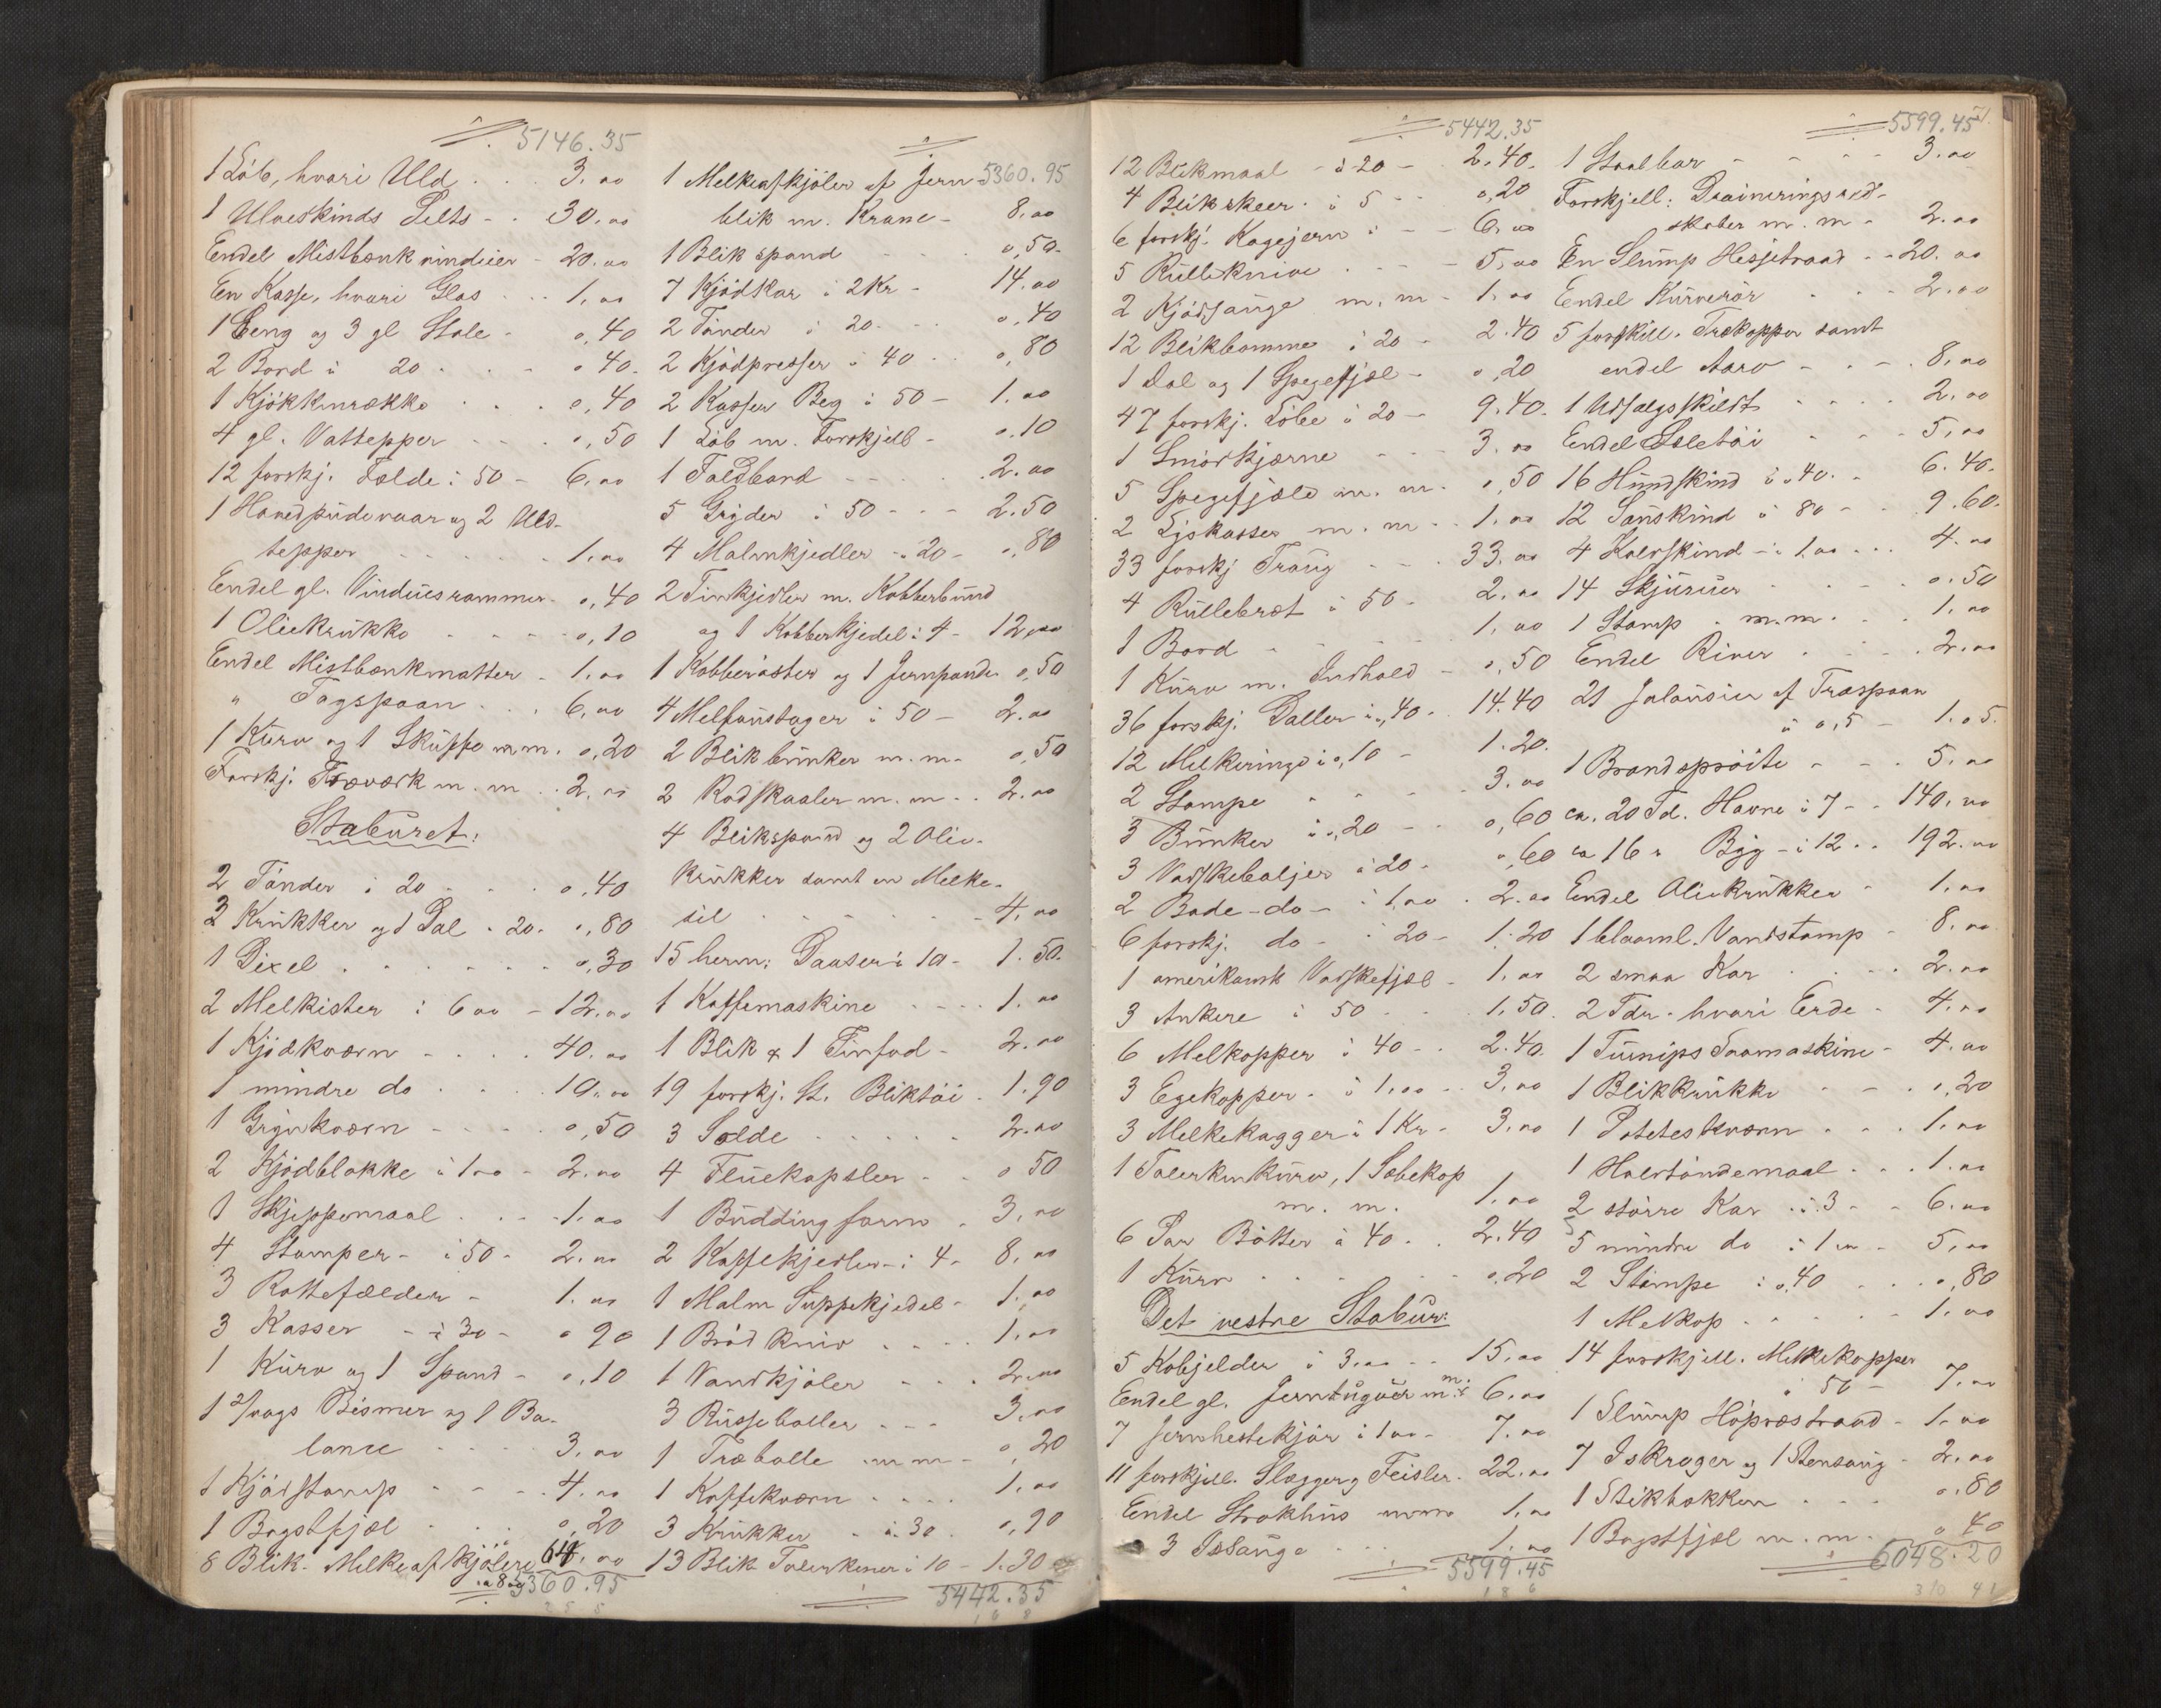 5146.35
1 Löb, hvori Uld . . . 3.00
1 Ulveskinds Pelts - . 30.00
Endel Mistbænkvinduer - 20.00
En Kasse, hvori Glas . . . 1.00
1 Seng og 3 gl Stole - 0,40
2 Bord à 20 . . . 0 40.
1 Kjökkenrække . . . 0,40
4 gl. Vattepper - - - 0,50
12 forskj. Fælde à 50 - 6.00
1 Hovedpudevaar og 2 Uld-
tepper - - - - 1.00
Endel gl. Vinduesrammer - 0,40
1 Oliekrukke - - - 0,10
Endel Mistbænkmatter - 1.00
" Tagspaan . . . 6,00
1 Kurv og 1 Skuffe m.m. 0,20
Forskj. Træværk m.m . . 2,00
Staburet:
2 Tönder à 20 - - - 0,40
3 Krukker og 1 Bal - 20 - 0,80
1 Dixel . . . . . 0,30
2 Melkister à 6 00 - 12.00
1 Kjödkværn - . . . 40.00
1 mindre do . . . 10.00
1 Grynkværn - - - 0,50
2 Kjödblokke à 1.00 - 2.00
1 Skjeppemaal . . - 1.00
4 Stamper - à 50 - 2.00
3 Rottefælder - 1.00
3 Kasser - à 30 - 0 90
1 Kurv og 1 Spand - 0,10
1 2/vogs Bismer og 1 Ba-
lance - - - 3.00
1 Kjödstamp - - - 4.00
1 Bagstfjæl - . . 0,20
8 Blik- Melkeafkjölere 64.00
à 8 00
5360.95
5360.95
1 Melkeafkjöler af Jern-
blik m. Krane - 8.00
1 Blikspand - - - 0,50.
7 Kjödkar à 2 Kr - 14.00
2 Tönder à 20 - - - 0,40
2 Kjödpresser à 40 . . 0,80
2 Kasser Beg à 50 - 1.00
1 Löb m. Forskjell - 0.10
1 Foldbord - - - 2.00
5 Gryder à 50 - - - 2.50
4 Malmkjedler - à 20 - 0,80
2 Tinkjedler m. Kobberbund
og 1 Kobberkjedel à 4 - 12,00
1 Kobberöster og 1 Jernpande 0,50
4 Melfaustager à 50 - 2.00
2 Blikbunker m.m. 0,50
2 Rodskaaler m.m . . 2.00
4 Blikspand og 2 Olie-
krukker samt en Melke-
sil . . . . . - 4,00
15 herm. Daaser à 10 - 1.50.
1 Kaffemaskine - - - 1.00
1 Blik & 1 Tinfad - 2.00
19 forskj. St. Bliktöi . 1.90
3 Solde . . . . . 2.00
4 Fluekapsler - . 0 50
1 Buddingform . 3.00
2 Kaffekjedler - à 4 - 8.00
1 Malm Suppekjedel - 1.00
1 Brödkniv . . . 1.00
1 Vandkjöler - - - 2.00
3 Russeboller . . - 3.00
1 Træbolle m m - 0,20
1 Kaffekværn . . . 1.00
3 Krukker - à 30 . 0,90
13 Blik Tallerkener à 10 - 1.30
5442.35
5442.35
12 Blikmaal - à 20 - 2.40.
4 Blikskeer - à 5 - - 0,20
6 forskj. Kagejern à - - 6.00
5 Rulleknive . . - 5.00
2 Kjödsauge m.m - 1.00
12 Blikbomme à 20 - 2.40
1 Dal og 1 Spegefjæl - 0,20
47 forskj. Löbe à 20 - 9.40.
1 Smörkjærne - - - 3.00
5 Spegefjæle m.m. 0,50
2 Lyskasser m.m . . 1.00
33 forskj Traug - - 33.00
4 Rullebræt à 50 - 2.00
1 Bord - - - - 1.00
1 Kurv m. Indhold - 0,50
36 forskj. Daller à 0,40 - 14.40
12 Melkeringe à 0,10 - 1.20.
2 Stampe - - - 3.00
3 Bunker à 0,20 - - 0,60
3 Vaskebaljer à 20 - 0,60
2 Bade - do - à 1.00 . 2.00
6 forskj. do - à 20 - 1.20
1 amerikansk Vaskefjæl - 1.00
3 Ankere à 50 - - 1,50.
6 Melkopper à 40 - . 2.40.
3 Egekopper - à 1.00 - . 3.00
3 Melkekagger à 1 Kr - 3.00
1 Tallerkenkurv, 1 Sæbekop
m. m. 1.00
6 Par Bötter à 40 . . 2.40
1 Kurv - - - - - 0.20
Det vestre Stabur:
5 Kobjelder à 3.00 - - 15.00
Endel gl. Jerntuguer m.m 6.00
7 Jernhestekjör à 1 00 - 7.00
11 forskjell. Slægger og Feisler . 22.00
Endel Strokhus m.m 1.00
3 Issauge . . . 1.00
5599.45
5599.45
1 Staalbor - - - - 3.00
Forskjell: Draineringsred-
skaber m.m - 2.00
En Slump Hesjetraad - - 20.00
Endel Kurverör . . - 2.00
5 forskjell. Trækopper samt
endel Aarv - - - 8.00
1 Udsalgsskildt . . . . 2.00
Endel Seletöi - - - 5,00
16 Hundskind à 0,40. - 6.40.
12 Sauskind à 80 - - 9.60.
4 Kalvskind - à 1.00 . . 4.00
14 Skjuruer - - - 0.50
1 Stamp . m.m . . 1.00
Endel River . . . - 2.00
21 Jalousier af Træspaan
à 0,5 - 1.05.
1 Brandspröite - - - 5.00
ca. 20 Td. Havre à 7 - - 140.00
ca 16 " Byg - à 12 . . 192.00
Endel Oliekrukker - 1.00
1 blaaml. Vandstamp - 8.00
2 smaa Kar . . - - 2.00
2 Tdr. hvori Erde - 4.00
1 Turnips Saamaskine - 4.00
1 Blikkrukke - - . 0,20
1 Poteteskværn . . . 1.00
1 Halvtöndemaal . . . 1.00
2 större Kar . à 3 - - 6.00
5 mindre do à 1 00 - 5.00
2 Stampe à 0,40 . . . 0,80
1 Melkop - - - - 1.00
14 forskjell. Melkekopper
à 50 - 7.00
1 Slump Höpræstraad - 1.00
7 Iskroger og 1 Stensaug - 2.00
1 Stikbækken . . . 0.80
1 Bagstfjæl m.m. 0 40
6048.20